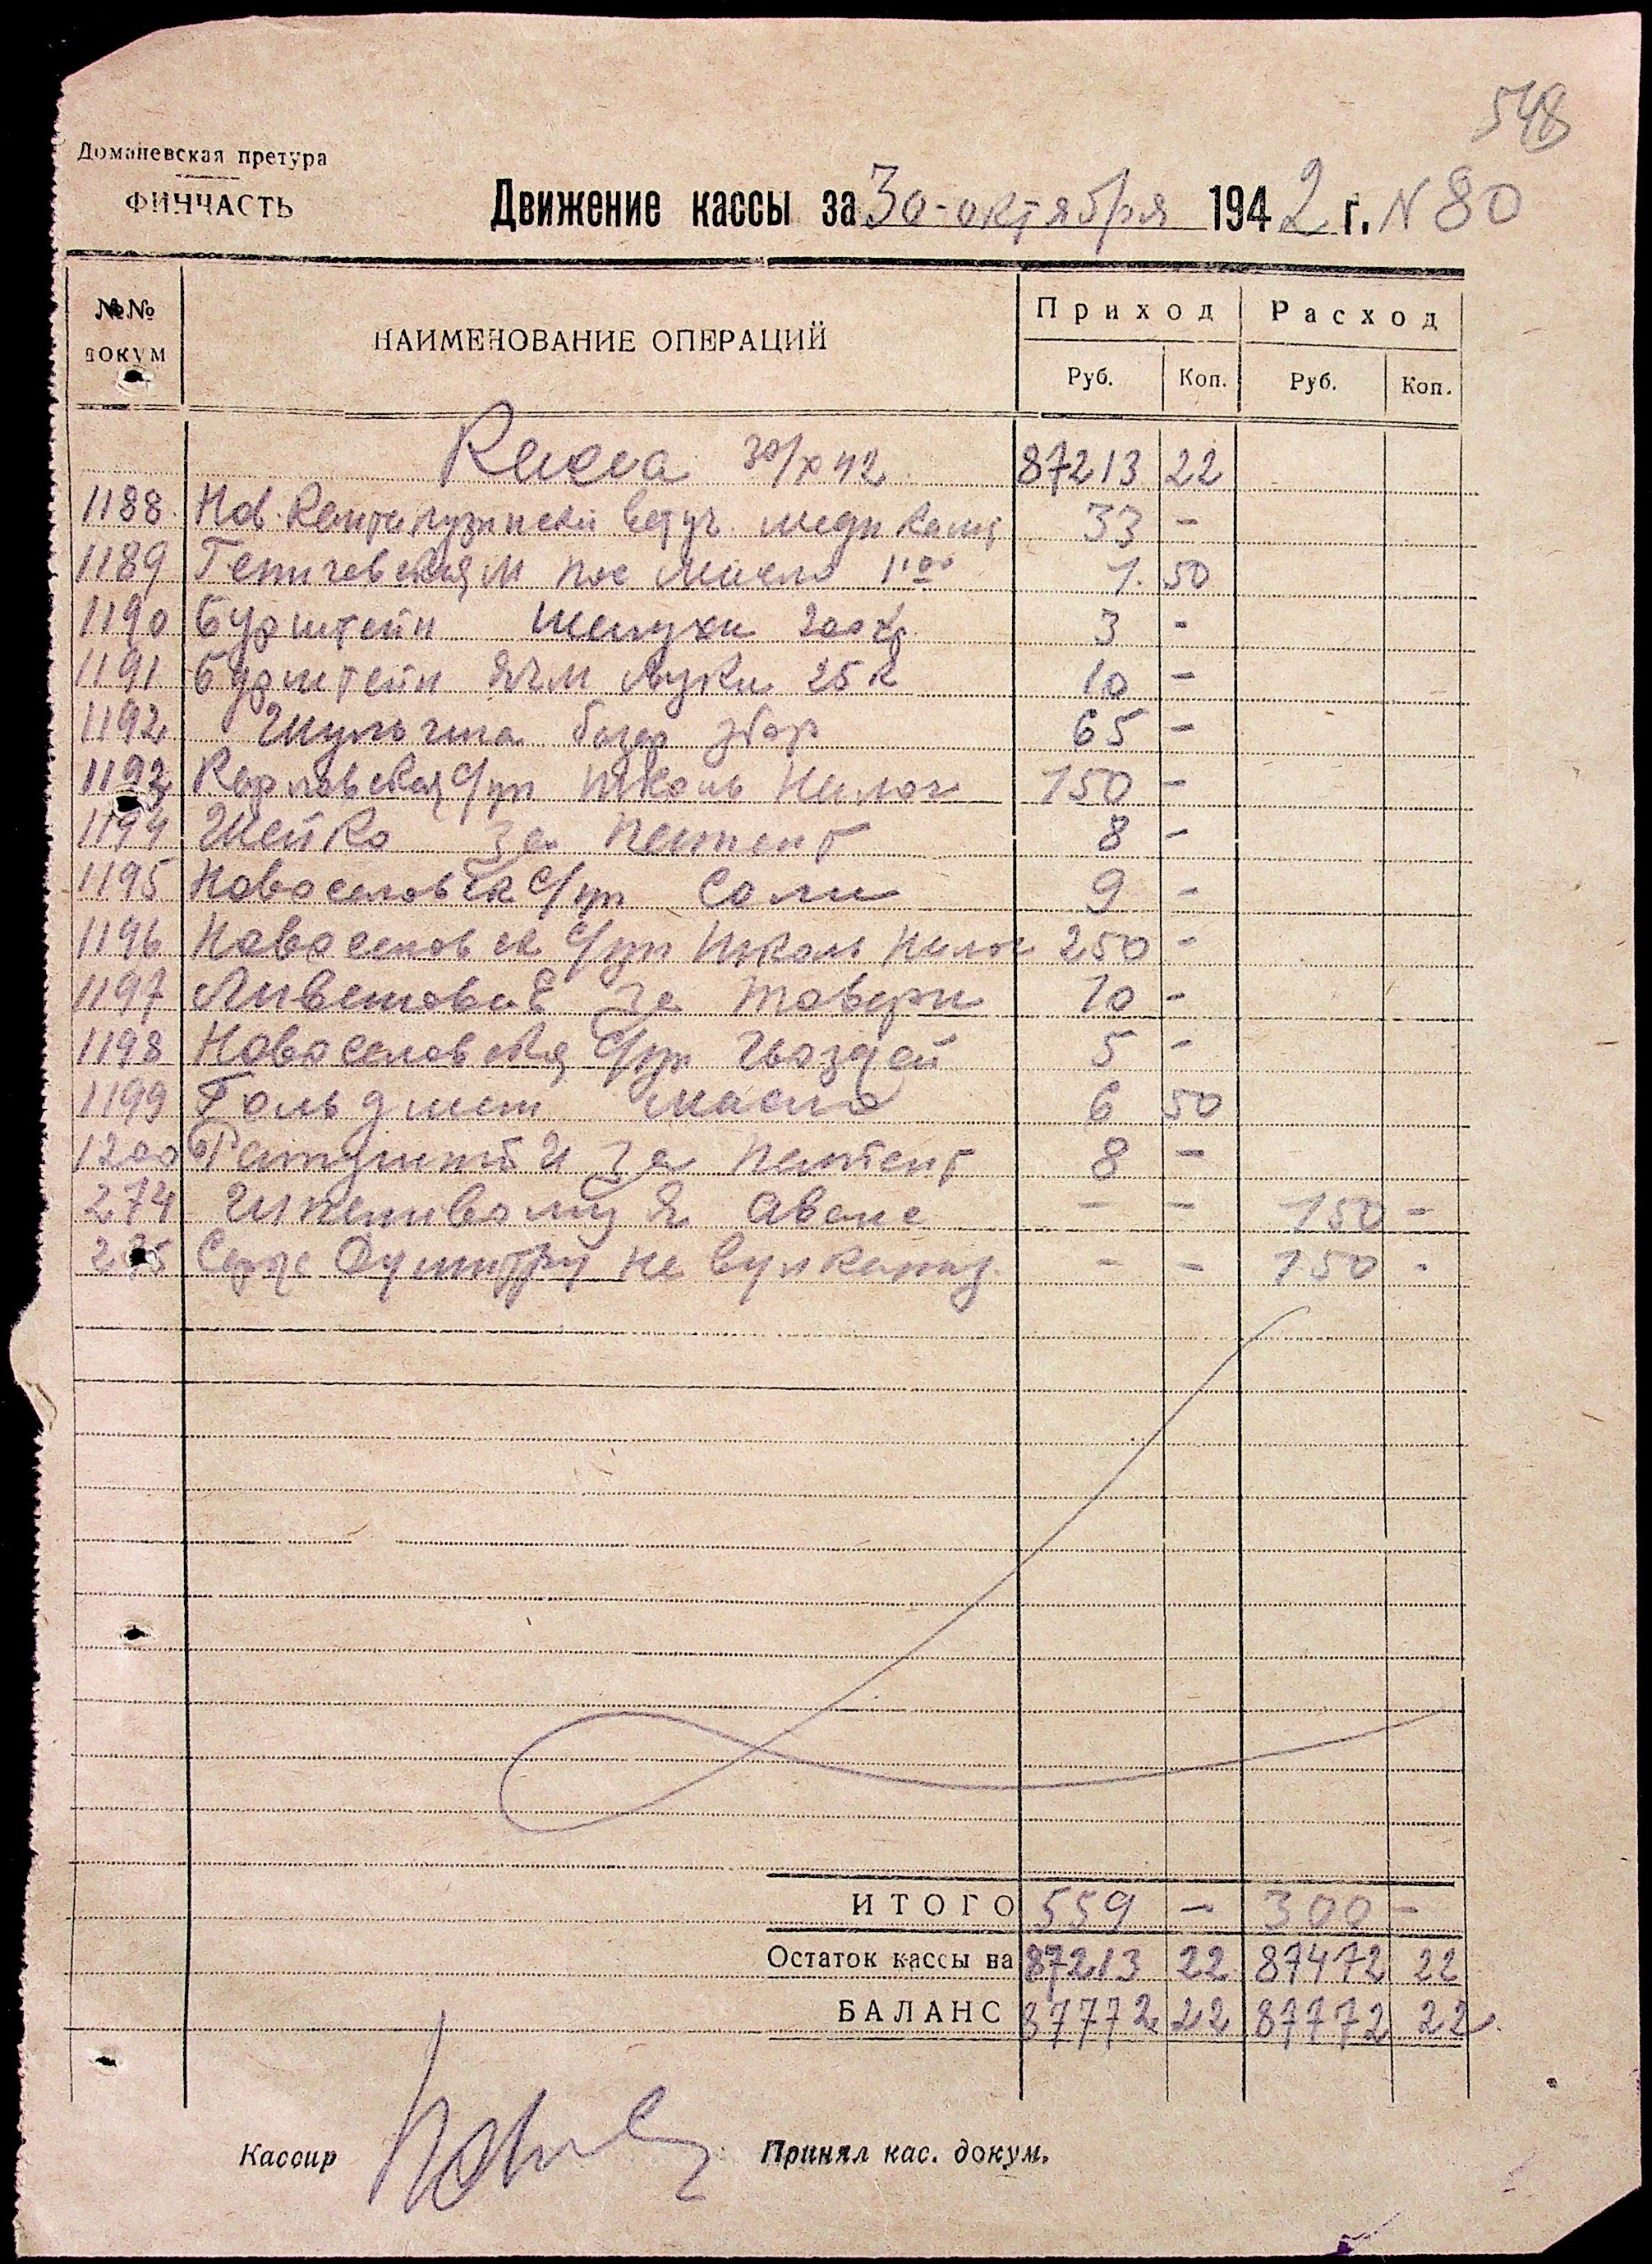 548
Доманевская претура
ФИНЧАСТЬ
Движение кассы за 30-октября 1942 г. N 80
№№ докум
НАИМЕНОВАНИЕ ОПЕРАЦИЙ
Приход Расход
Руб. Коп. Руб. Коп.
Касса 30/X 42 87213 22
1188 Нов. Кантакузинский 33 -
1189 М масло 1 50
1190 Бурштейн Шелухи 200 кг 3 -
1191 Бурштейн Ячм Муки 25 к 10 -
1192 Шульгина базар збор 65 -
1193 Карловская с/уп Школь Налог 150 -
1194 Шейко за патент 8 -
1195 Новоселовск с/уп Соли 9 -
1196 Новоселовск с/уп Школь Налог 250 -
1197 за товары 10 -
1198 Новоселовская с/уп гвоздей 5 -
1199 масло 6 50
1200 за патент 8 -
274 Аванс - - 150 -
275 Думитру на - - 150 -
ИТОГО 559 - 300 -
Остаток кассы на 87213 22 87472 22
БАЛАНС 87772 22 87772 22
Кассир Принял кас. докум.